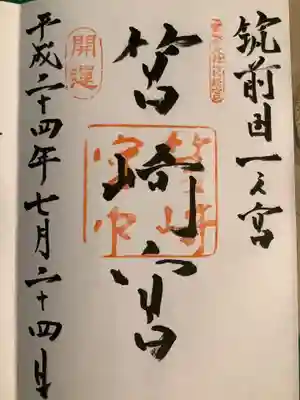 筑前国一之宮
筥崎宮
開運
平成二十四年七月二十四日